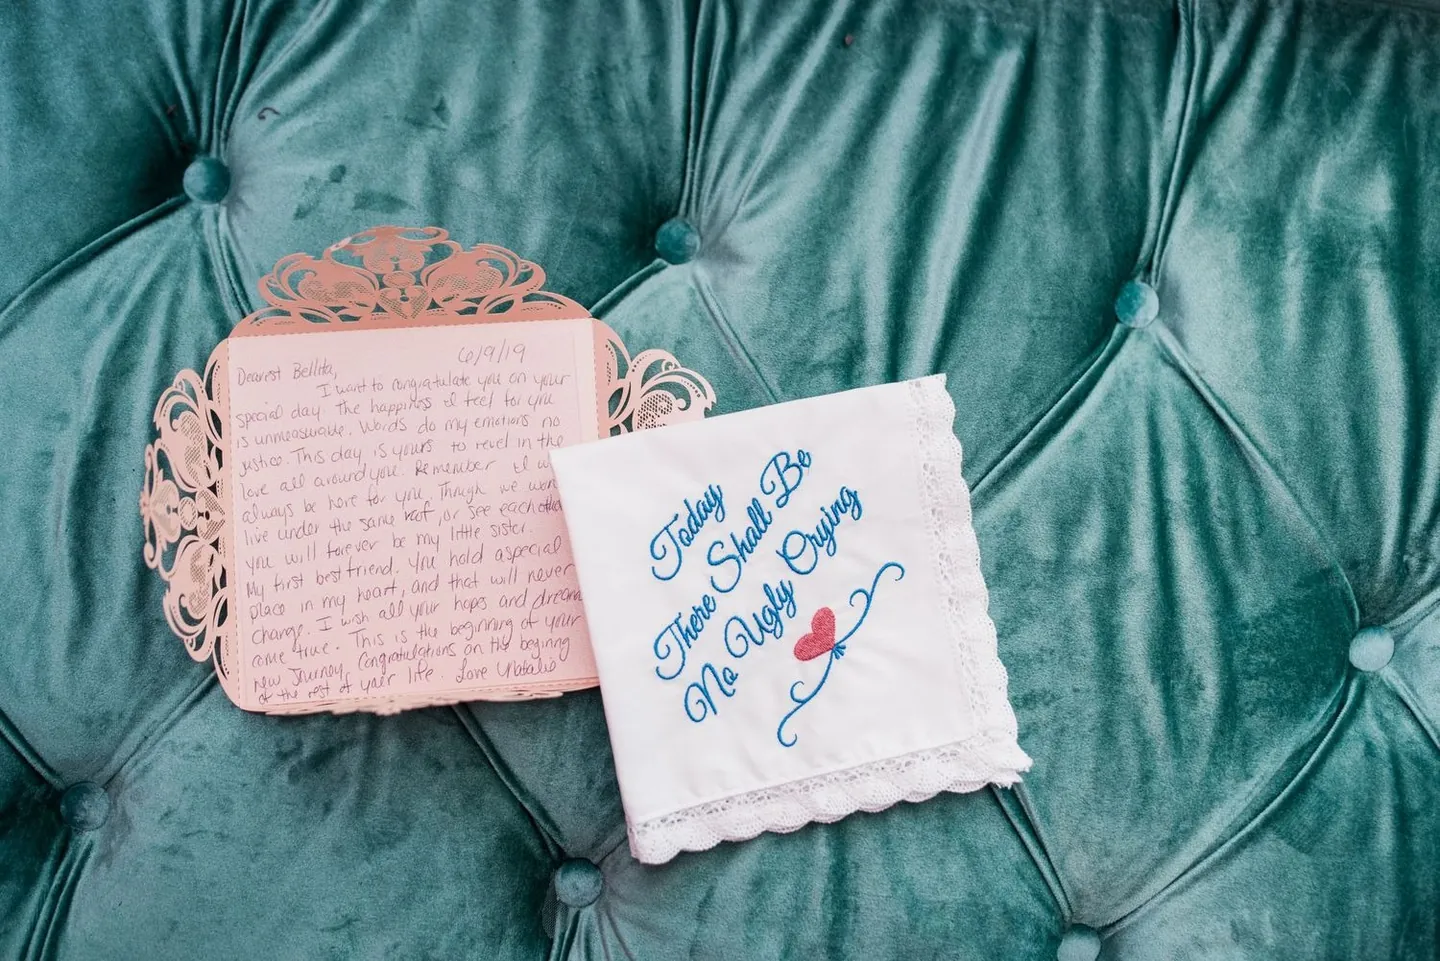 6/9/19
Dearest Bellita,
I want to congratulate you on your
special day. The happiness I feel for you
is unmeasurable. Words do my emotions no
justice. This day is yours to revel in the
love all around you. Remember I w
always be here for you. Though we won
live under the same roof, or see each other
you will forever be my little sister.
My first best friend. You hold a special
place in my heart, and that will never
change. I wish all your hopes and dreams
come true. This is the beginning of your
new Journey, Congratulations on the begining
of the rest of your life. Love Natalie
Today
There Shall Be
No Ugly Crying